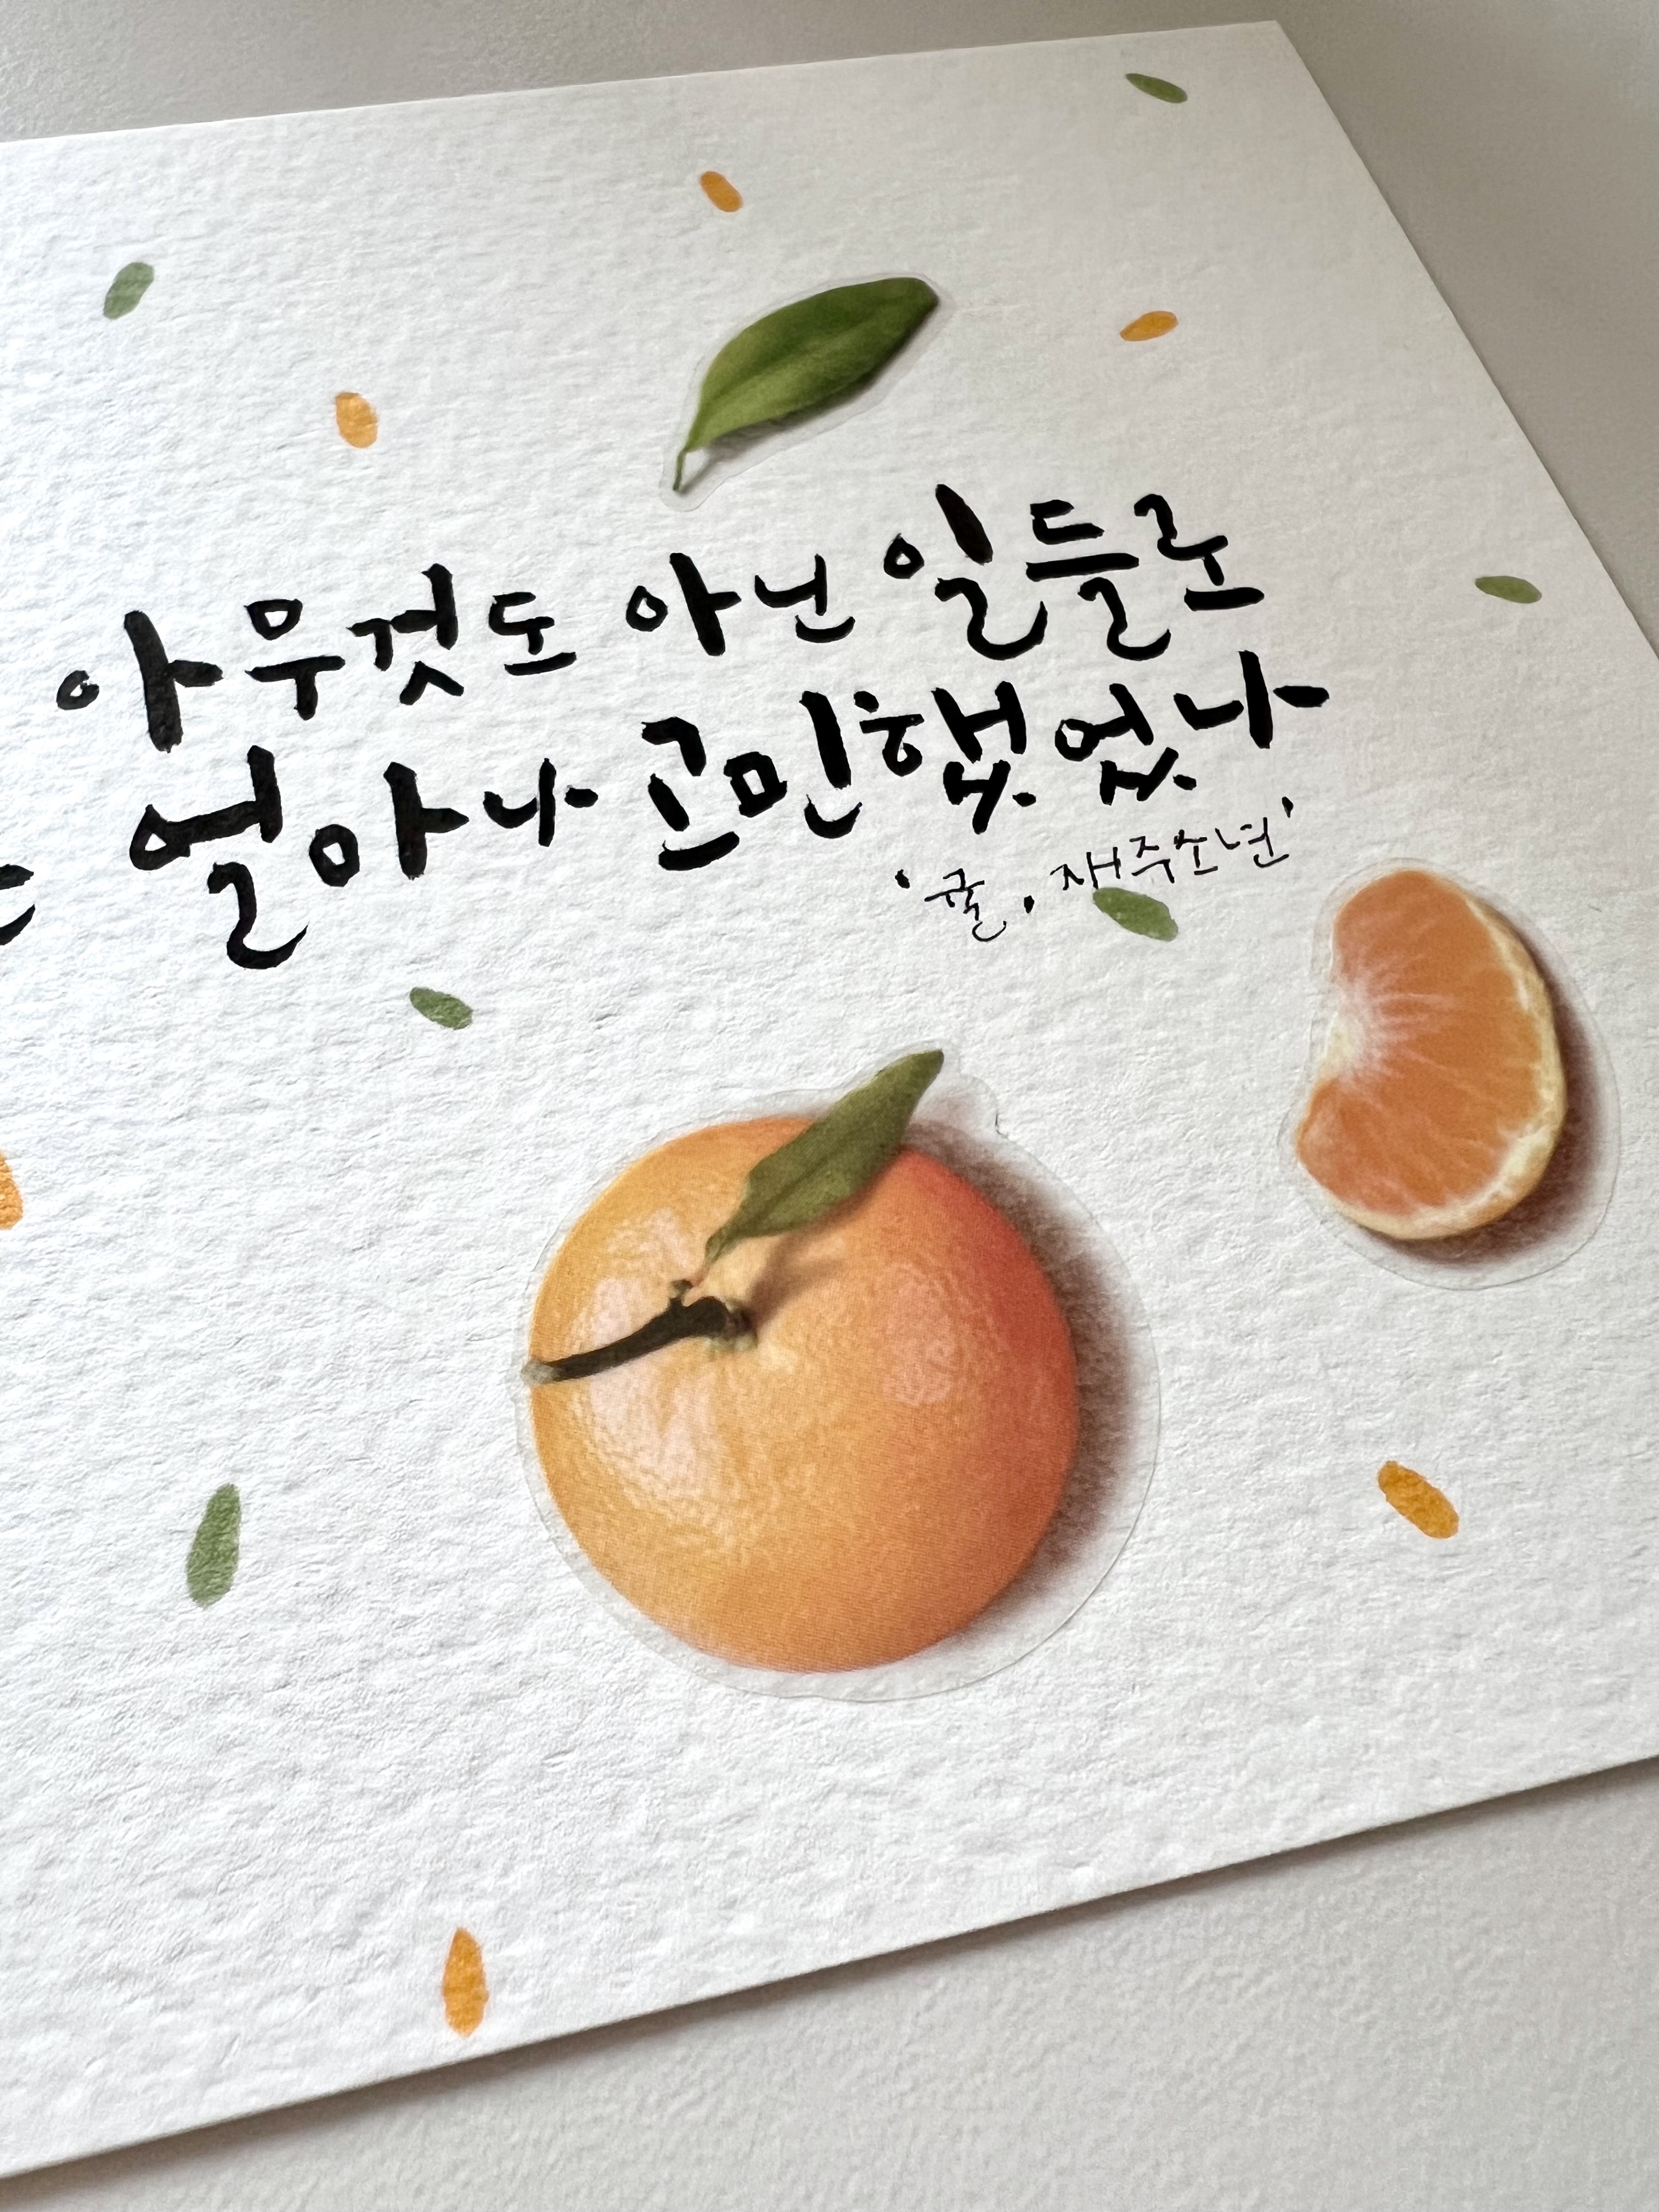 아무것도 아닌 일들로
얼마나 고민했었나
'귤, 재주소년'